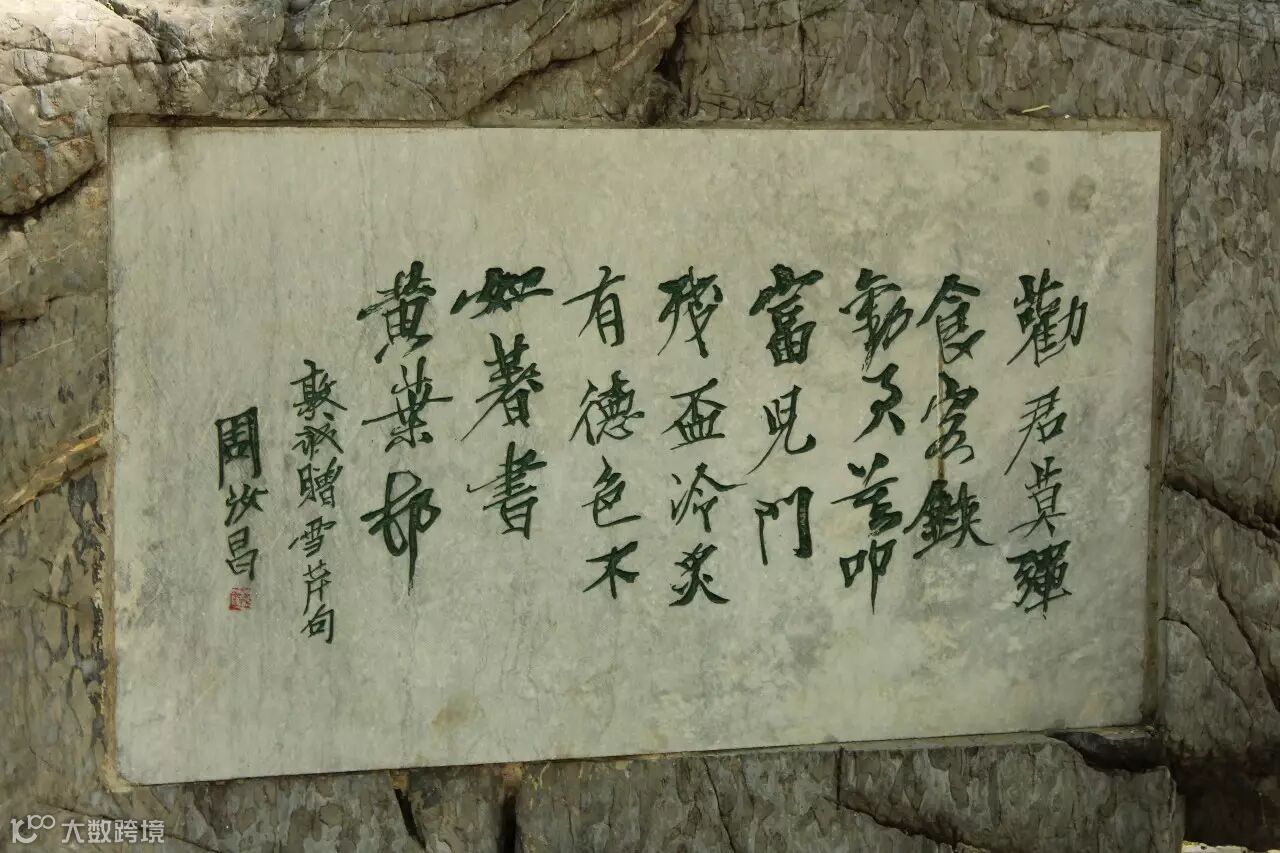 勸君莫彈
食客鋏
勸君莫叩
富兒門
殘盃冷炙
有德色不
如著書
黄葉邨
敦誠贈雪芹句
周汝昌
大数跨境